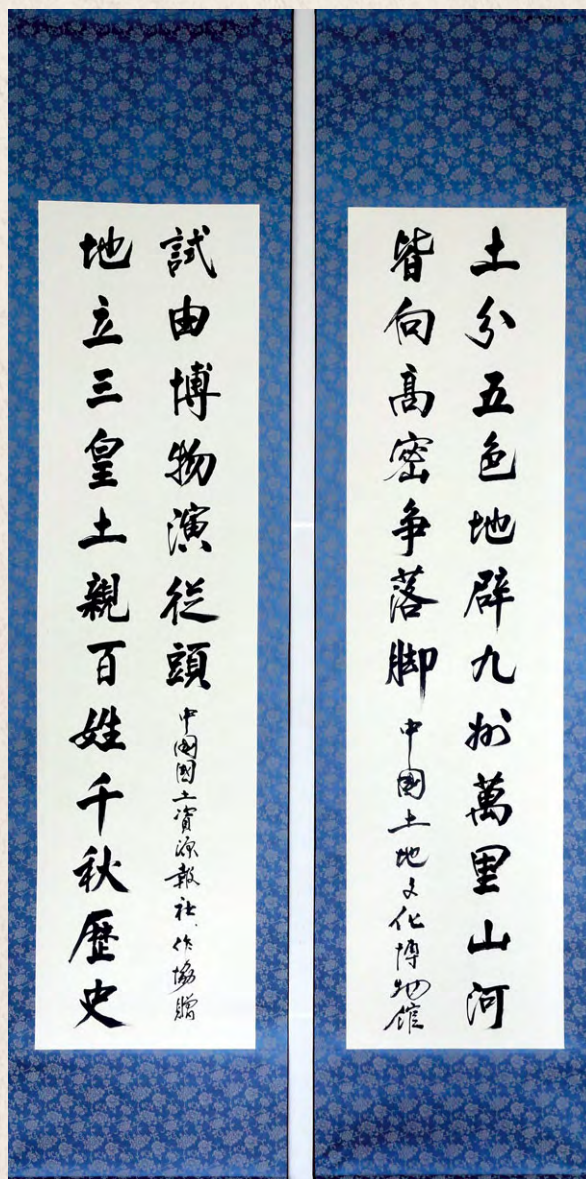 土分五色地辟九州萬里山河
皆向高密争落脚 中國土地文化博物館
地立三皇土親百姓千秋歷史
試由博物演從頭 中國國土資源報社、作協贈